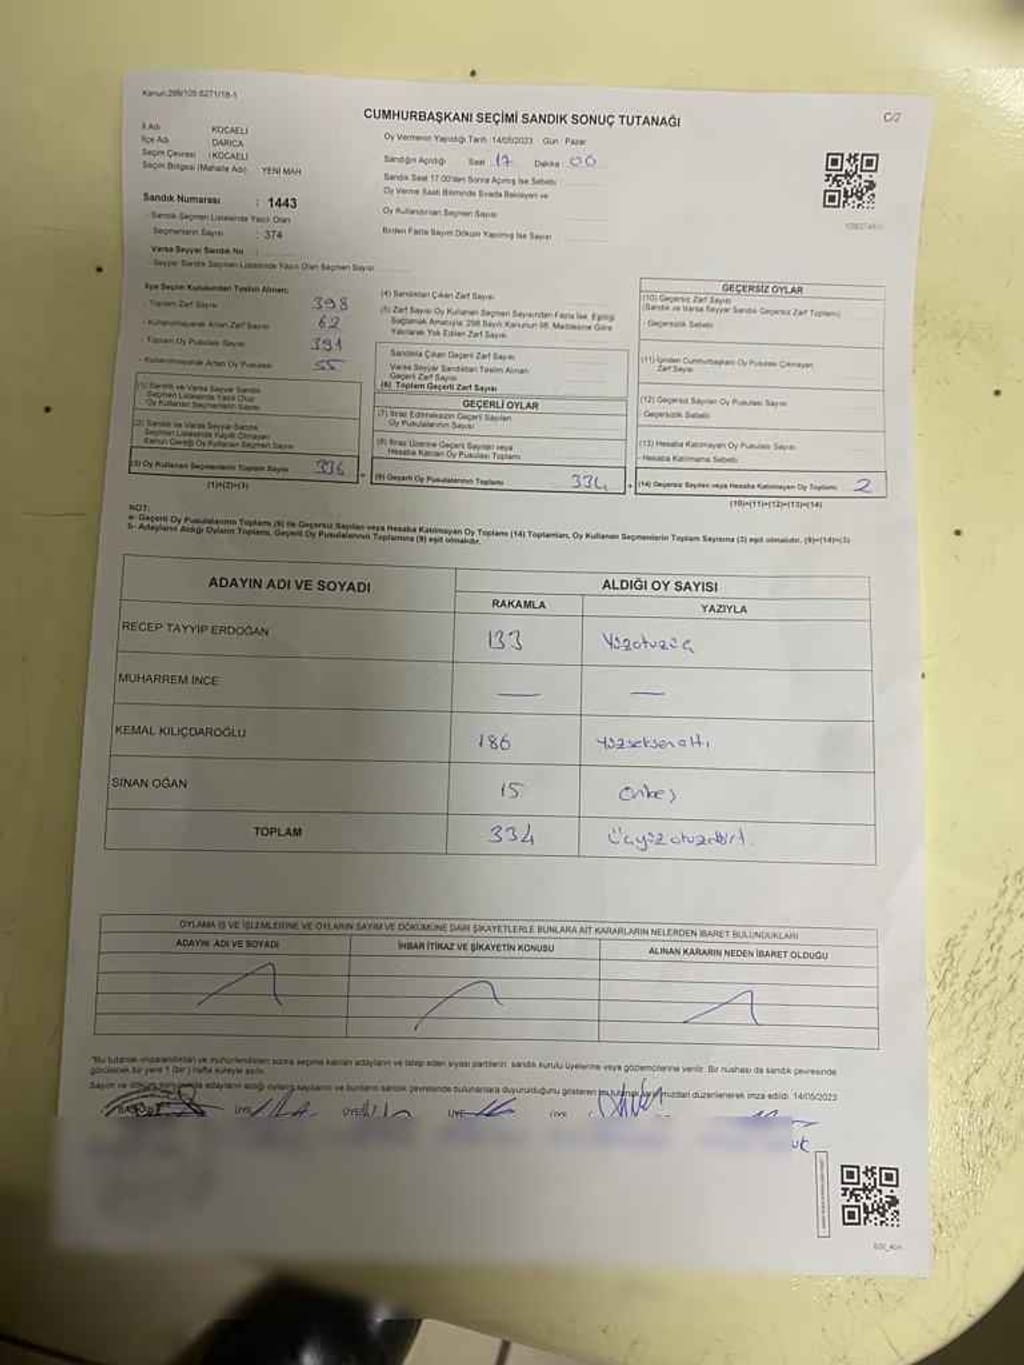 Kanun:298/105 6271/18-1
C/2
CUMHURBAŞKANI SEÇİMİ SANDIK SONUÇ TUTANAĞI
İl Adı KOCAELİ
İlçe Adı DARICA
Seçim Çevresi : KOCAELİ
Seçim Bölgesi (Mahalle Adı) YENİ MAH
Sandık Numarası : 1443
Sandık Seçmen Listesinde Yazılı Olan
Seçmenlerin Sayısı : 374
Varsa Seyyar Sandık No :
Seyyar Sandık Seçmen Listesinde Yazılı Olan Seçmen Sayısı
Oy Vermenin Yapıldığı Tarih 14/05/2023 Gün : Pazar
Sandığın Açıldığı Saat 17 Dakika 00
Sandık Saat 17.00'den Sonra Açılmış İse Sebebi
Oy Verme Saati Bitiminde Sırada Bekleyen ve
Oy Kullandırılan Seçmen Sayısı
Birden Fazla Sayım Döküm Yapılmış İse Sayısı
İlçe Seçim Kurulundan Teslim Alınan;
- Toplam Zarf Sayısı 398
- Kullanılmayarak Artan Zarf Sayısı 62
- Toplam Oy Pusulası Sayısı 391
- Kullanılmayarak Artan Oy Pusulası 55
(1) Sandık ve Varsa Seyyar Sandık
Seçmen Listesinde Yazılı Olup
Oy Kullanan Seçmenlerin Sayısı
(2) Sandık ve Varsa Seyyar Sandık
Seçmen Listesinde Kayıtlı Olmayan
Kanun Gereği Oy Kullanan Seçmen Sayısı
(3) Oy Kullanan Seçmenlerin Toplam Sayısı 336
(1)+(2)=(3)
(4) Sandıktan Çıkan Zarf Sayısı
(5) Zarf Sayısı Oy Kullanan Seçmen Sayısından Fazla İse, Eşitliği
Sağlamak Amacıyla, 298 Sayılı Kanunun 98. Maddesine Göre
Yakılarak Yok Edilen Zarf Sayısı
Sandıkta Çıkan Geçerli Zarf Sayısı
Varsa Seyyar Sandıktan Teslim Alınan
Geçerli Zarf Sayısı
(6) Toplam Geçerli Zarf Sayısı
GEÇERLİ OYLAR
(7) İtiraz Edilmeksizin Geçerli Sayılan
Oy Pusulalarının Sayısı
(8) İtiraz Üzerine Geçerli Sayılan veya
Hesaba Katılan Oy Pusulası Toplamı
(9) Geçerli Oy Pusulalarının Toplamı 334
GEÇERSİZ OYLAR
(10) Geçersiz Zarf Sayısı
(Sandık ve Varsa Seyyar Sandık Geçersiz Zarf Toplamı)
- Geçersizlik Sebebi
(11) İçinden Cumhurbaşkanı Oy Pusulası Çıkmayan
Zarf Sayısı
(12) Geçersiz Sayılan Oy Pusulası Sayısı
- Geçersizlik Sebebi
(13) Hesaba Katılmayan Oy Pusulası Sayısı
- Hesaba Katılmama Sebebi
(14) Geçersiz Sayılan veya Hesaba Katılmayan Oy Toplamı 2
(10)+(11)+(12)+(13)=(14)
NOT:
a- Geçerli Oy Pusulalarının Toplamı (9) ile Geçersiz Sayılan veya Hesaba Katılmayan Oy Toplamı (14) Toplamları, Oy Kullanan Seçmenlerin Toplam Sayısına (3) eşit olmalıdır. (9)+(14)=(3)
b- Adayların Aldığı Oyların Toplamı, Geçerli Oy Pusulalarının Toplamına (9) eşit olmalıdır.
ADAYIN ADI VE SOYADI ALDIĞI OY SAYISI
RAKAMLA YAZIYLA
RECEP TAYYİP ERDOĞAN 133 Yüzotuzüç
MUHARREM İNCE — —
KEMAL KILIÇDAROĞLU 186 Yüzseksenaltı
SİNAN OĞAN 15 Onbeş
TOPLAM 334 Üçyüzotuzdört
OYLAMA İŞ VE İŞLEMLERİNE VE OYLARIN SAYIM VE DÖKÜMÜNE DAİR ŞİKAYETLERLE BUNLARA AİT KARARLARIN NELERDEN İBARET BULUNDUKLARI
ADAYIN ADI VE SOYADI İHBAR İTİRAZ VE ŞİKAYETİN KONUSU ALINAN KARARIN NEDEN İBARET OLDUĞU
"Bu tutanak imzalandıktan ve mühürlendikten sonra seçime katılan adayların ve talep eden siyasi partilerin, sandık kurulu üyelerine veya gözlemcilerine verilir. Bir nüshası da sandık çevresinde
görülecek bir yere 1 (bir) hafta süreyle asılır.
Sayım ve döküm adayların aldığı oyların sayılarını ve bunların sandık çevresinde bulunanlara duyurulduğunu gösteren düzenlenerek imza edildi. 14/05/2023
BAŞKAN ÜYE ÜYE ÜYE ÜYE